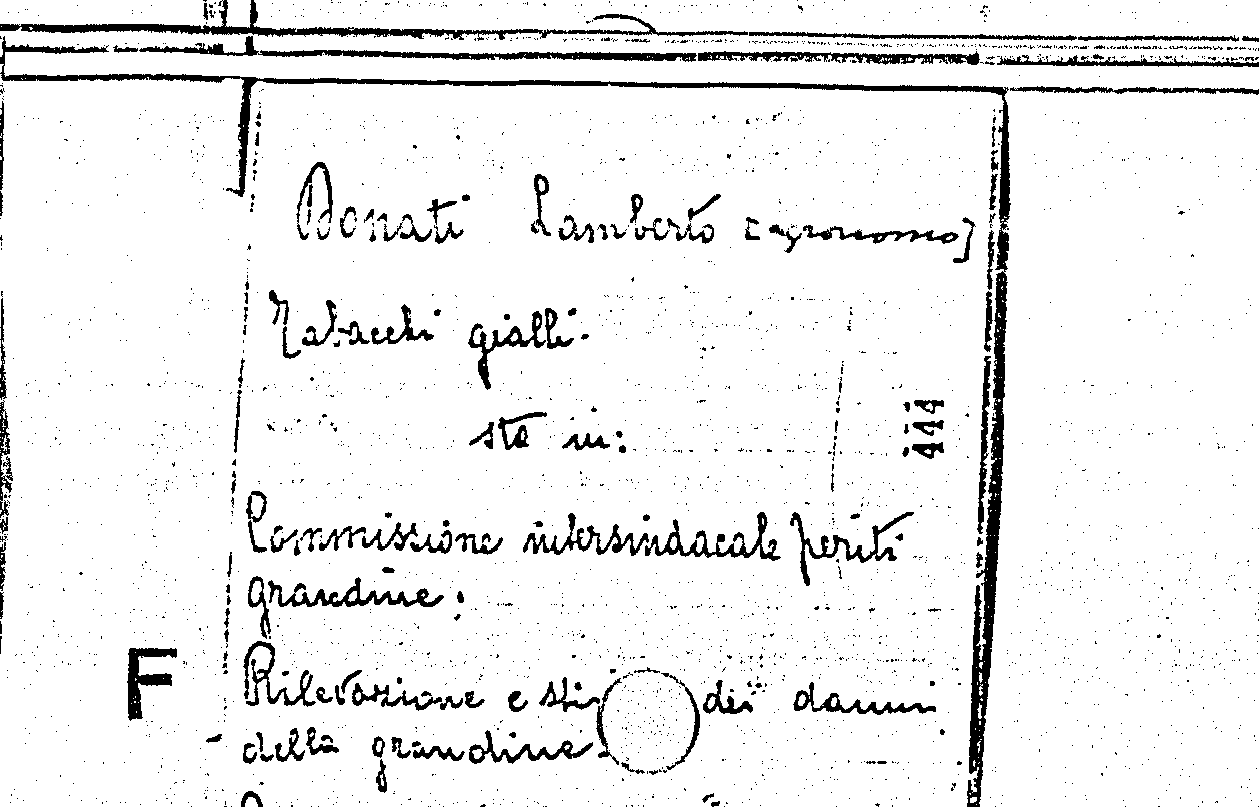 Donati Lamberto [agronomo]
Tabacchi gialli.
sta in:
444
Commissione intersindacale periti
grandine:
F
Rilevazione e sti dei danni
della grandine.